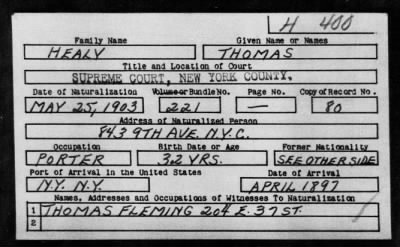 H 400
Family Name Given Name or Names
HEALY THOMAS
Title and Location of Court
SUPREME COURT, NEW YORK COUNTY.
Date of Naturalization Volume or Bundle No. Page No. Copy of Record No.
MAY 25, 1903 221 — 80
Address of Naturalized Person
843 9TH AVE. N.Y.C.
Occupation Birth Date or Age Former Nationality
PORTER 32 YRS. SEE OTHER SIDE
Port of Arrival in the United States Date of Arrival
N.Y. N.Y. APRIL 1897
Names, Addresses and Occupations of Witnesses To Naturalization
1 THOMAS FLEMING 204 E. 37 ST.
2